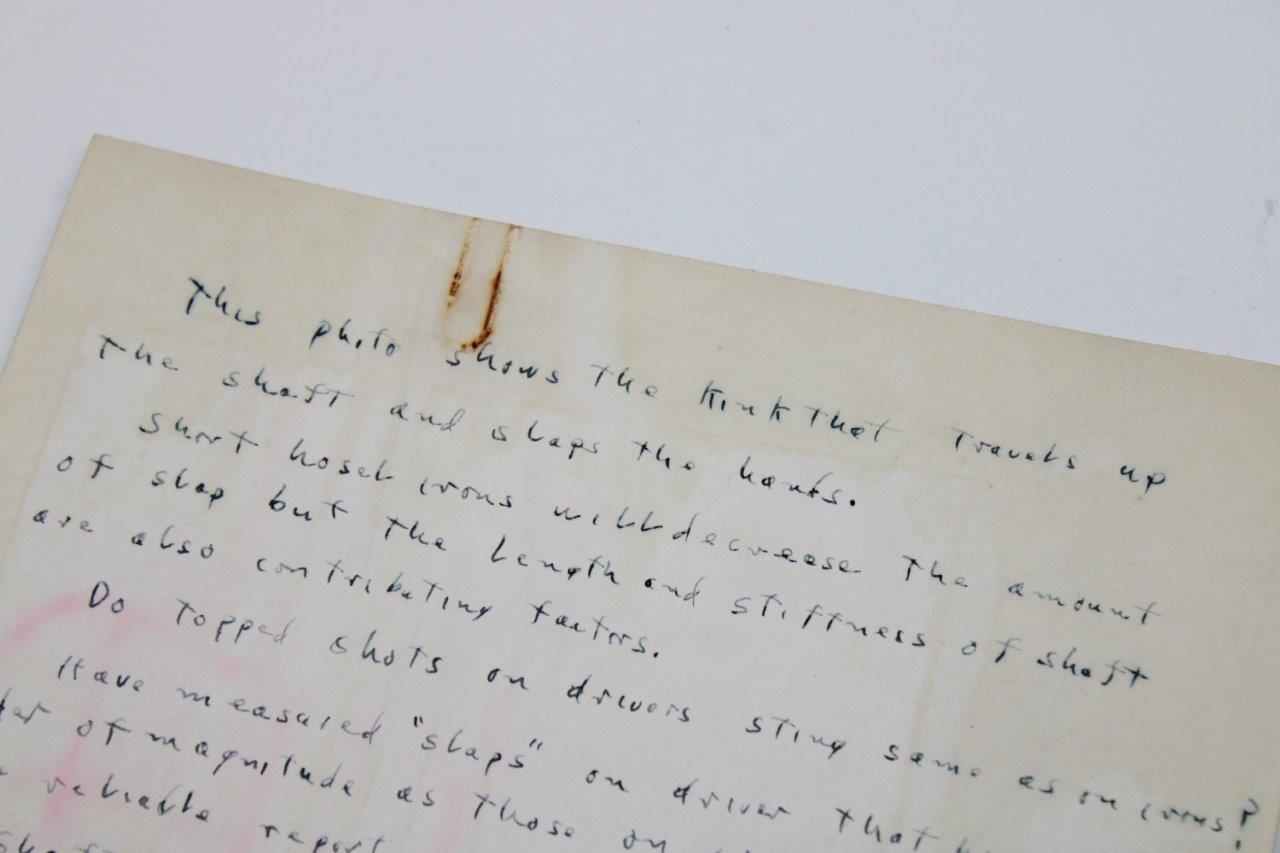 This photo shows the kink that travels up
the shaft and slaps the hands.
Short hosel irons will decrease the amount
of slap but the length and stiffness of shaft
are also contributing factors.
Do topped shots on drivers sting same as on irons?
Have measured "slaps" on driver that
of magnitude as those on
reliable report